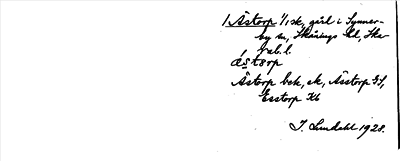 1 Åstorp 1/1 sk, gård i Synner-
by sn, Skånings hd, Ska-
rab. l.
åstørp
Åstorp bek, ek, Åsstorp GS,
Esstorp Kb
J. Lundahl 1928.